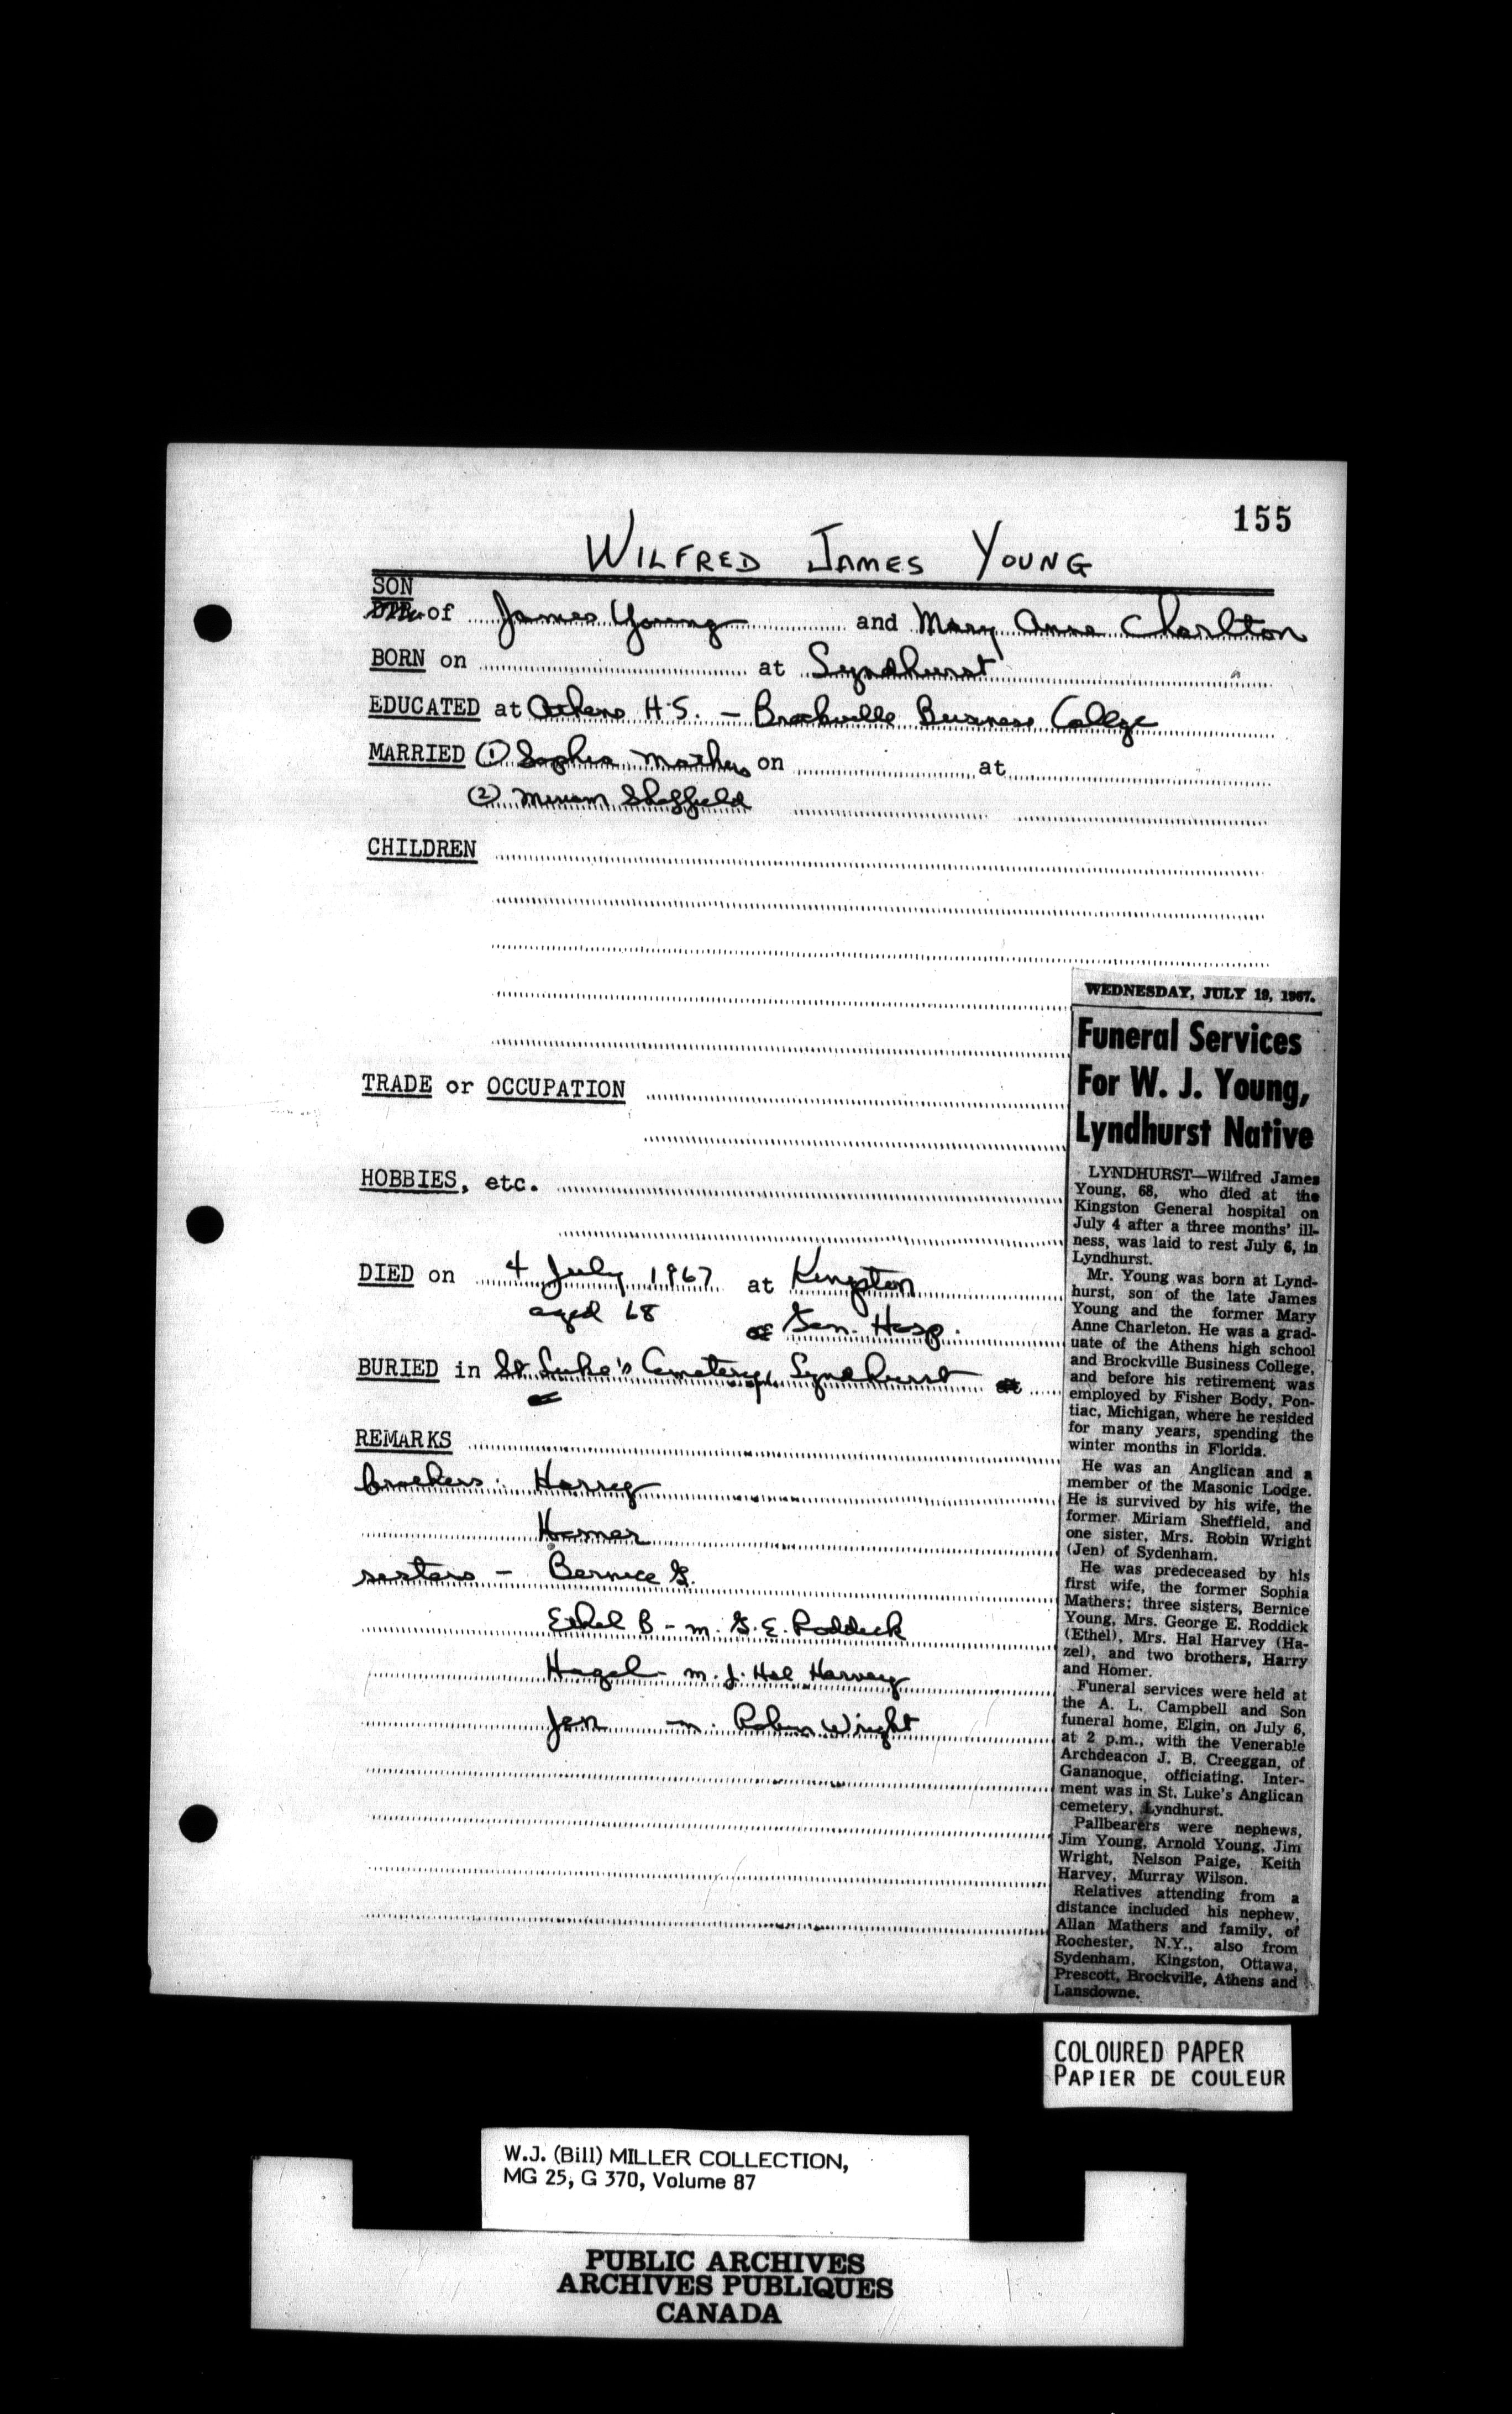 155
WILFRED JAMES YOUNG
SON
DTR of James Young and Mary Anne Charlton
BORN on at Lyndhurst
EDUCATED at Athens H.S. – Brockville Business College
MARRIED (1) Sophia Mathers on at
(2) Miriam Sheffield
CHILDREN
TRADE or OCCUPATION
HOBBIES, etc.
DIED on 4 July 1967 at Kingston
aged 68 Gen. Hosp.
BURIED in St. Luke's Cemetery, Lyndhurst
REMARKS
brothers: Harry
Homer
sisters – Bernice G.
Ethel B – m. G. E. Roddick
Hazel – m. J. Hal Harvey
Jen – m. Robin Wright
WEDNESDAY, JULY 19, 1967.
Funeral Services
For W. J. Young,
Lyndhurst Native
LYNDHURST—Wilfred James
Young, 68, who died at the
Kingston General hospital on
July 4 after a three months' ill-
ness, was laid to rest July 6, in
Lyndhurst.
Mr. Young was born at Lynd-
hurst, son of the late James
Young and the former Mary
Anne Charleton. He was a grad-
uate of the Athens high school
and Brockville Business College,
and before his retirement was
employed by Fisher Body, Pon-
tiac, Michigan, where he resided
for many years, spending the
winter months in Florida.
He was an Anglican and a
member of the Masonic Lodge.
He is survived by his wife, the
former Miriam Sheffield, and
one sister, Mrs. Robin Wright
(Jen) of Sydenham.
He was predeceased by his
first wife, the former Sophia
Mathers; three sisters, Bernice
Young, Mrs. George E. Roddick
(Ethel), Mrs. Hal Harvey (Ha-
zel), and two brothers, Harry
and Homer.
Funeral services were held at
the A. L. Campbell and Son
funeral home, Elgin, on July 6,
at 2 p.m., with the Venerable
Archdeacon J. B. Creeggan, of
Gananoque, officiating. Inter-
ment was in St. Luke's Anglican
cemetery, Lyndhurst.
Pallbearers were nephews,
Jim Young, Arnold Young, Jim
Wright, Nelson Paige, Keith
Harvey, Murray Wilson.
Relatives attending from a
distance included his nephew,
Allan Mathers and family, of
Rochester, N.Y., also from
Sydenham, Kingston, Ottawa,
Prescott, Brockville, Athens and
Lansdowne.
COLOURED PAPER
PAPIER DE COULEUR
W.J. (Bill) MILLER COLLECTION,
MG 25, G 370, Volume 87
PUBLIC ARCHIVES
ARCHIVES PUBLIQUES
CANADA